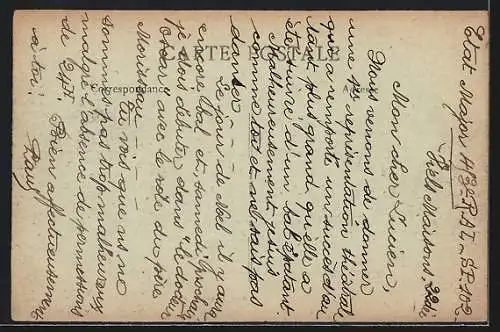 CARTE POSTALE
Correspondance
Adresse
Etat Major
Mon cher Lucien,
Nous venons de donner
une représentation théâtrale
qui a remporté un succès d'au
tant plus grand qu'elle a
été suivie d'un bal épatant
Malheureusement je suis
comme tout et ne sais pas
danser
Le jour de Noël il y aura
encore bal et, samedi prochain,
je dois débuter dans "le docteur
Oscar" avec le rôle du père
Tu vois que nous ne
sommes pas trop malheureux
malgré l'absence de permissions
de 24 H.
Bien affectueusement
à toi.